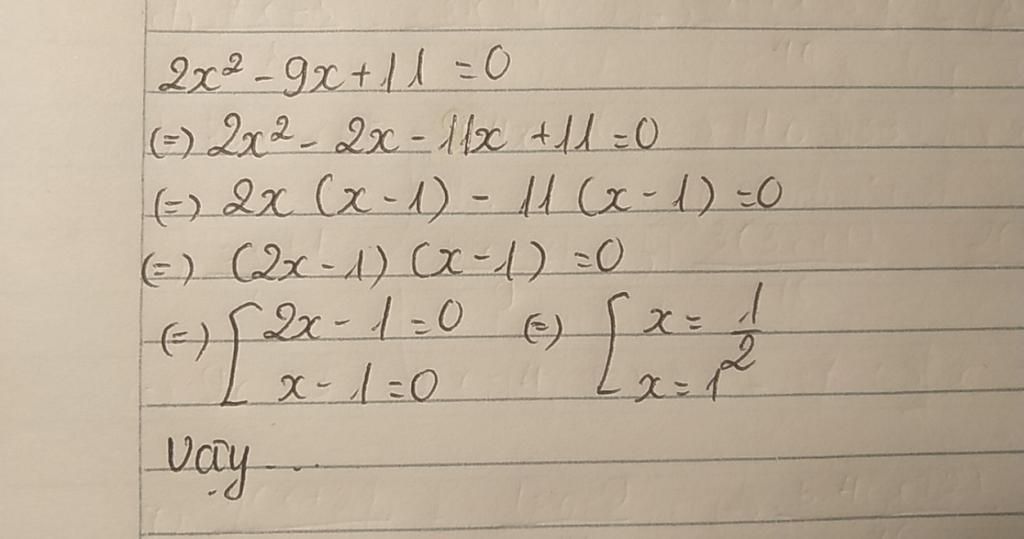 2x² - 9x + 11 = 0
(=) 2x² - 2x - 11x + 11 = 0
(=) 2x (x - 1) - 11 (x - 1) = 0
(=) (2x - 1) (x - 1) = 0
(=) [ 2x - 1 = 0 (=) [ x = 1/2
x - 1 = 0 x = 1
Vậy ...